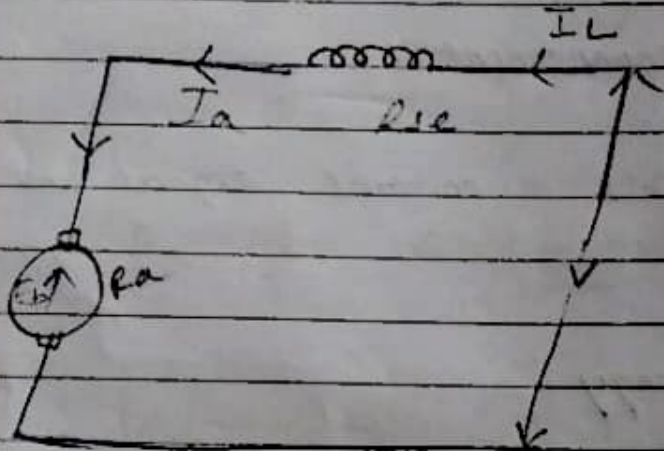 IL
Ia
Rse
Eb
Ra
V